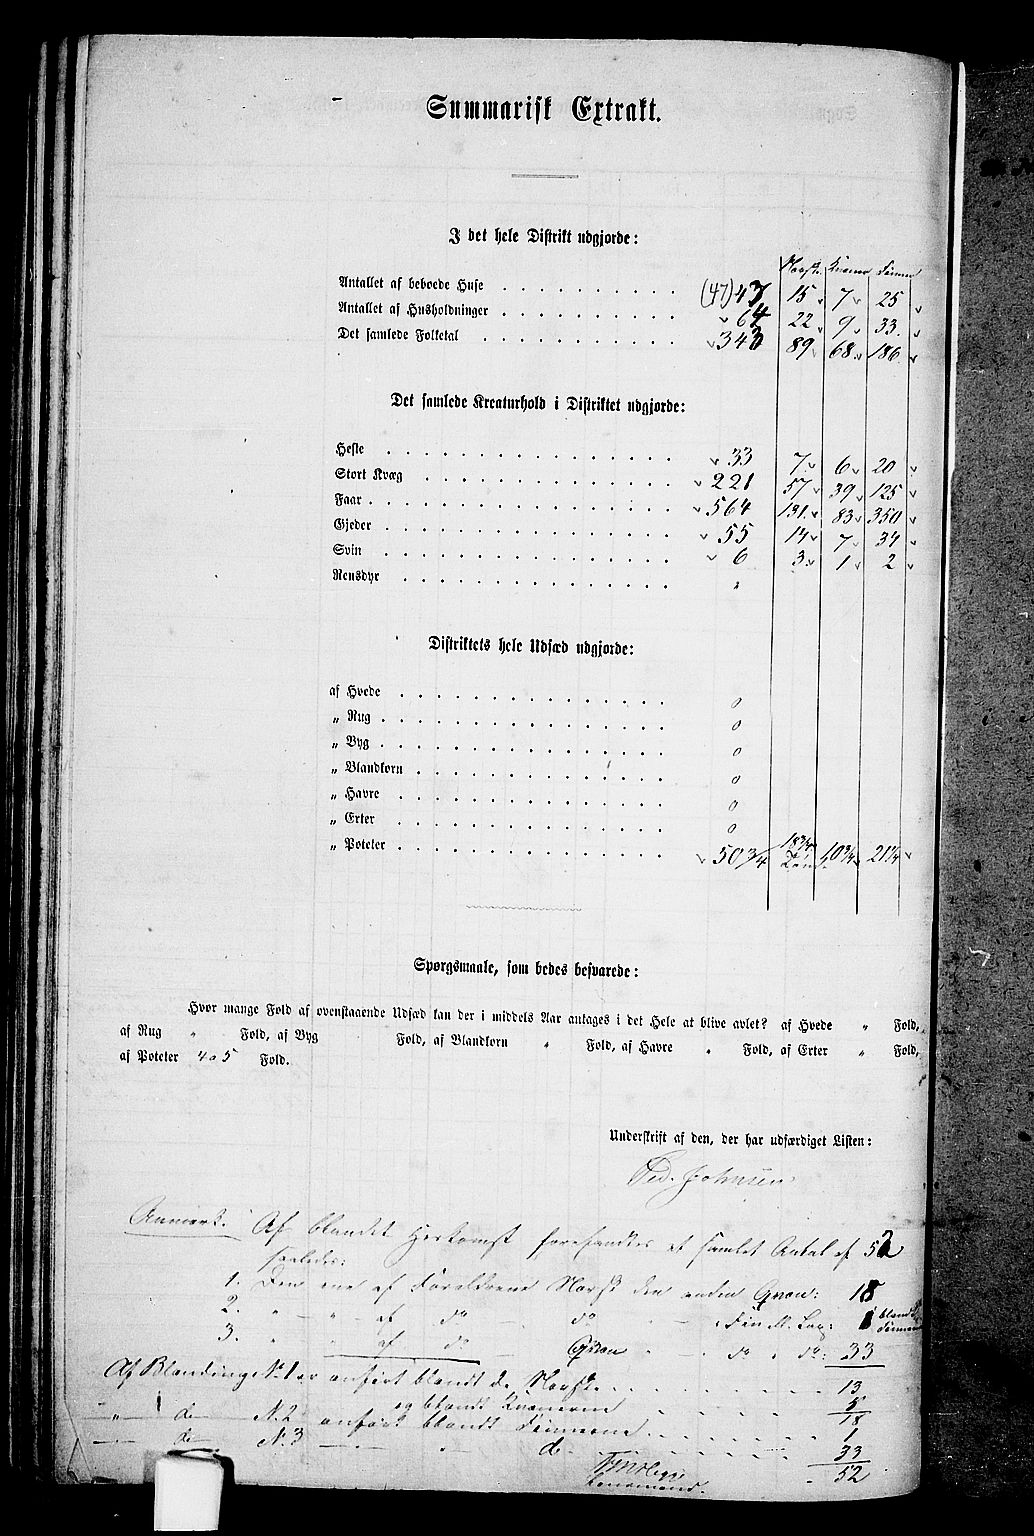 Summarisk Extrakt.
I det hele Distrikt udgjorde:
Norske Kvæner Finner
Antallet af beboede Huse (47) 47 15 7 25
Antallet af Husholdninger 64 22 9 33
Det samlede Folketal 343 89 68 186
Det samlede Kreaturhold i Distriktet udgjorde:
Heste 33 7 6 20
Stort Kvæg 221 57 39 125
Faar 564 131 83 350
Gjeder 55 14 7 34
Svin 6 3 1 2
Rensdyr "
Distriktets hele Udsæd udgjorde:
af Hvede 0
„ Rug 0
„ Byg 0
„ Blandkorn 0
„ Havre 0
„ Erter 0
„ Poteter 50 3/4 18 3/4 Tønd. 10 3/4 21 1/4
Spørgsmaale, som bedes besvarede:
Hvor mange Fold af ovenstaaende Udsæd kan der i middels Aar antages i det Hele at blive avlet? af Hvede " Fold,
af Rug " Fold, af Byg Fold, af Blandkorn " Fold, af Havre " Fold, af Erter " Fold,
af Poteter 4 a 5 Fold.
Underskrift af den, der har udfærdiget Listen:
Ped. Johnsen
Anmærk. Af blandet Herkomst forefandtes et samlet Antal af 52
saaledes:
1. Den ene af Forældrene Norsk den anden Qvæn: 18
2. " " af do do Fin 1
3. " af do Qvæn " do do: 33
Af Blanding No 1 er anført blandt de Norske 13
og blandt Kvænerne 5
18
" de N. 2 anført blandt Finnerne 1
de N. 3 " de 33
52